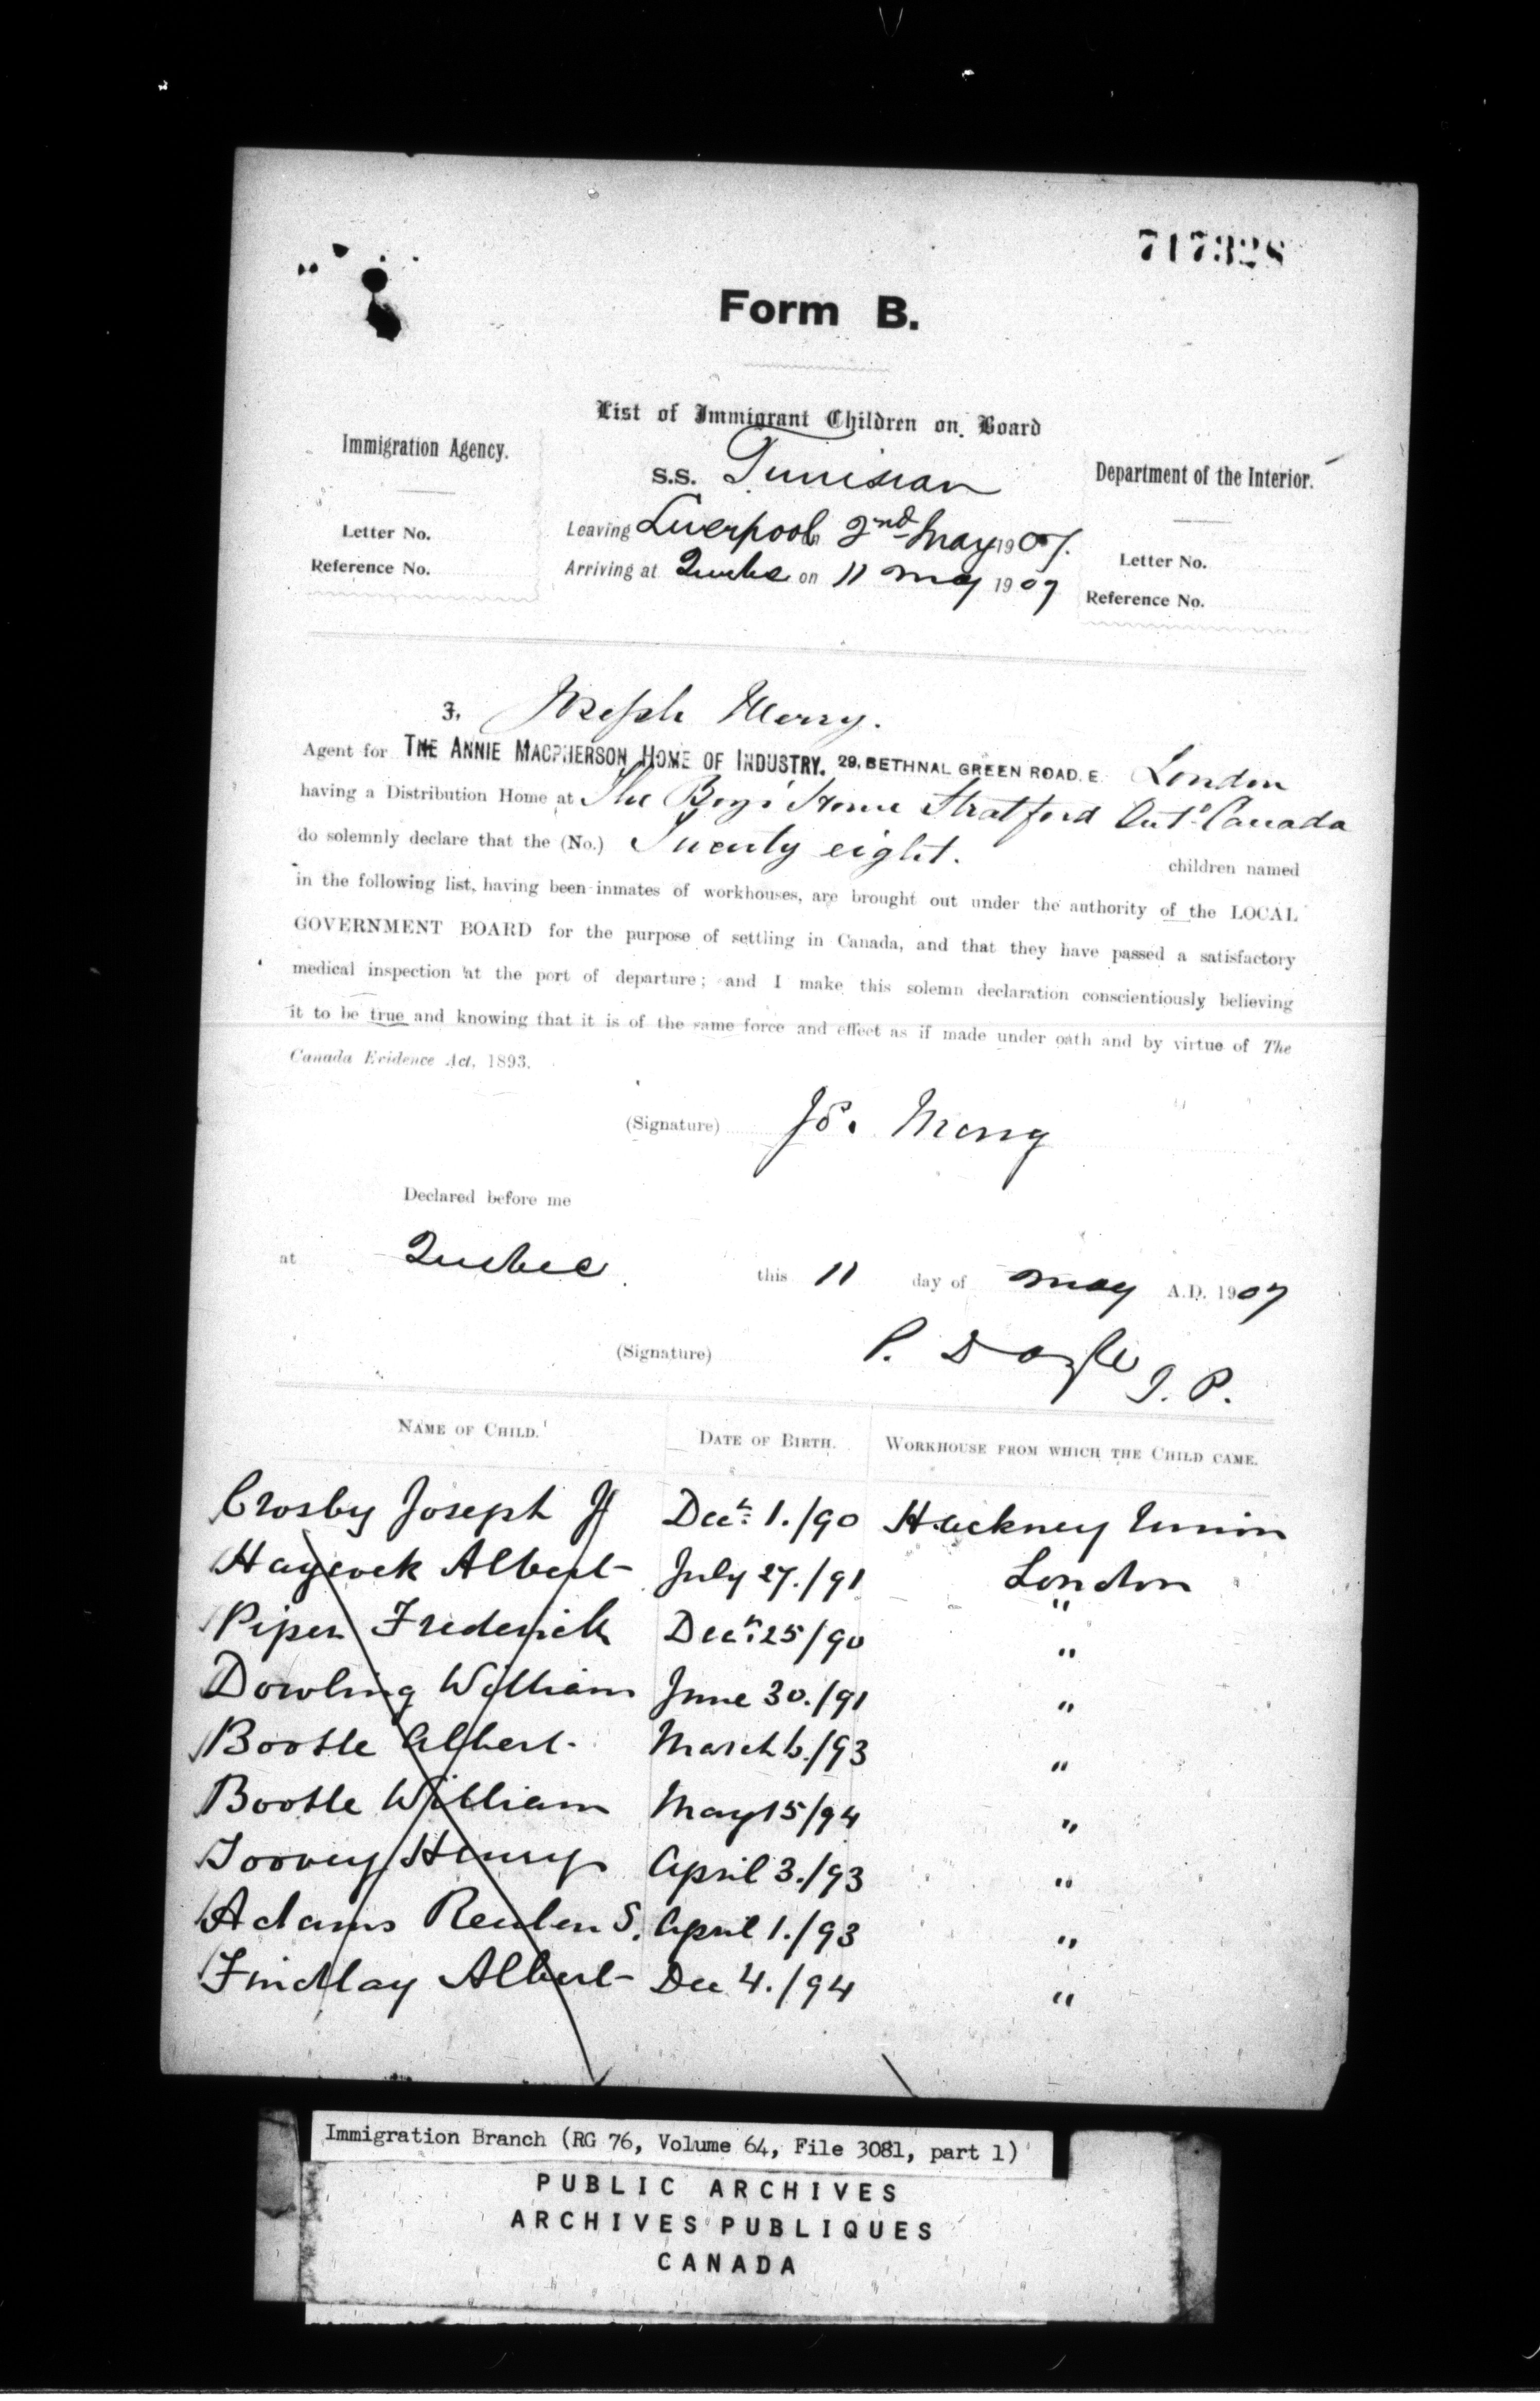 717328
Form B.
List of Immigrant Children on Board
Immigration Agency.
S.S. Tunisian
Department of the Interior.
Letter No.
Leaving Liverpool 2nd May 1907.
Letter No.
Reference No.
Arriving at Quebec on 11 May 1907
Reference No.
I, Joseph Merry.
Agent for THE ANNIE MACPHERSON HOME OF INDUSTRY. 29, BETHNAL GREEN ROAD. E. London
having a Distribution Home at The Boys' Home Stratford Ont. Canada
do solemnly declare that the (No.) Twenty eight. children named
in the following list, having been inmates of workhouses, are brought out under the authority of the LOCAL
GOVERNMENT BOARD for the purpose of settling in Canada, and that they have passed a satisfactory
medical inspection at the port of departure; and I make this solemn declaration conscientiously believing
it to be true and knowing that it is of the same force and effect as if made under oath and by virtue of The
Canada Evidence Act, 1893.
(Signature) Jos. Merry
Declared before me
at Quebec this 11 day of May A.D. 1907
(Signature) P. Doyle J.P.
NAME OF CHILD. DATE OF BIRTH. WORKHOUSE FROM WHICH THE CHILD CAME.
Crosby Joseph Decr. 1./90 Hackney Union
Haycock Albert July 27./91 London
Piper Frederick Decr. 25/90 "
Dowling William June 30./91 "
Bootle Albert March 6./93 "
Bootle William May 15/94 "
Toovey Henry April 3./93 "
Adams Reuben S. April 1./93 "
Findlay Albert Dec 4./94 "
Immigration Branch (RG 76, Volume 64, File 3081, part 1)
PUBLIC ARCHIVES
ARCHIVES PUBLIQUES
CANADA